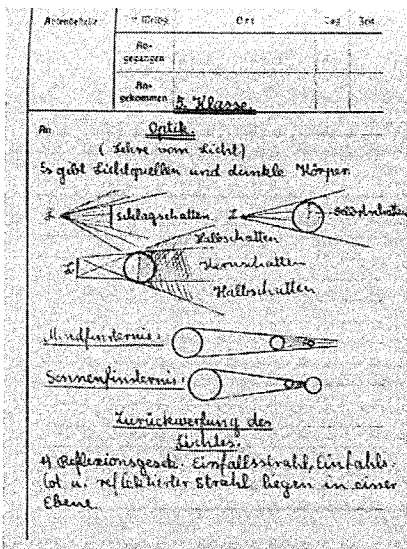 Ort Tag Zeit
Ab-
gegangen
An-
gekommen
5. Klasse.
An Optik.
(Lehre vom Licht)
Es gibt Lichtquellen und dunkle Körper
L Schlagschatten L
Halbschatten
L Kernschatten
Halbschatten
Mondfinsternis:
Sonnenfinsternis:
Zurückwerfung des
Lichtes.
Reflexionsgesetz. Einfallsstrahl, Einfahls-
lot u. reflektierter Strahl liegen in einer
Ebene.